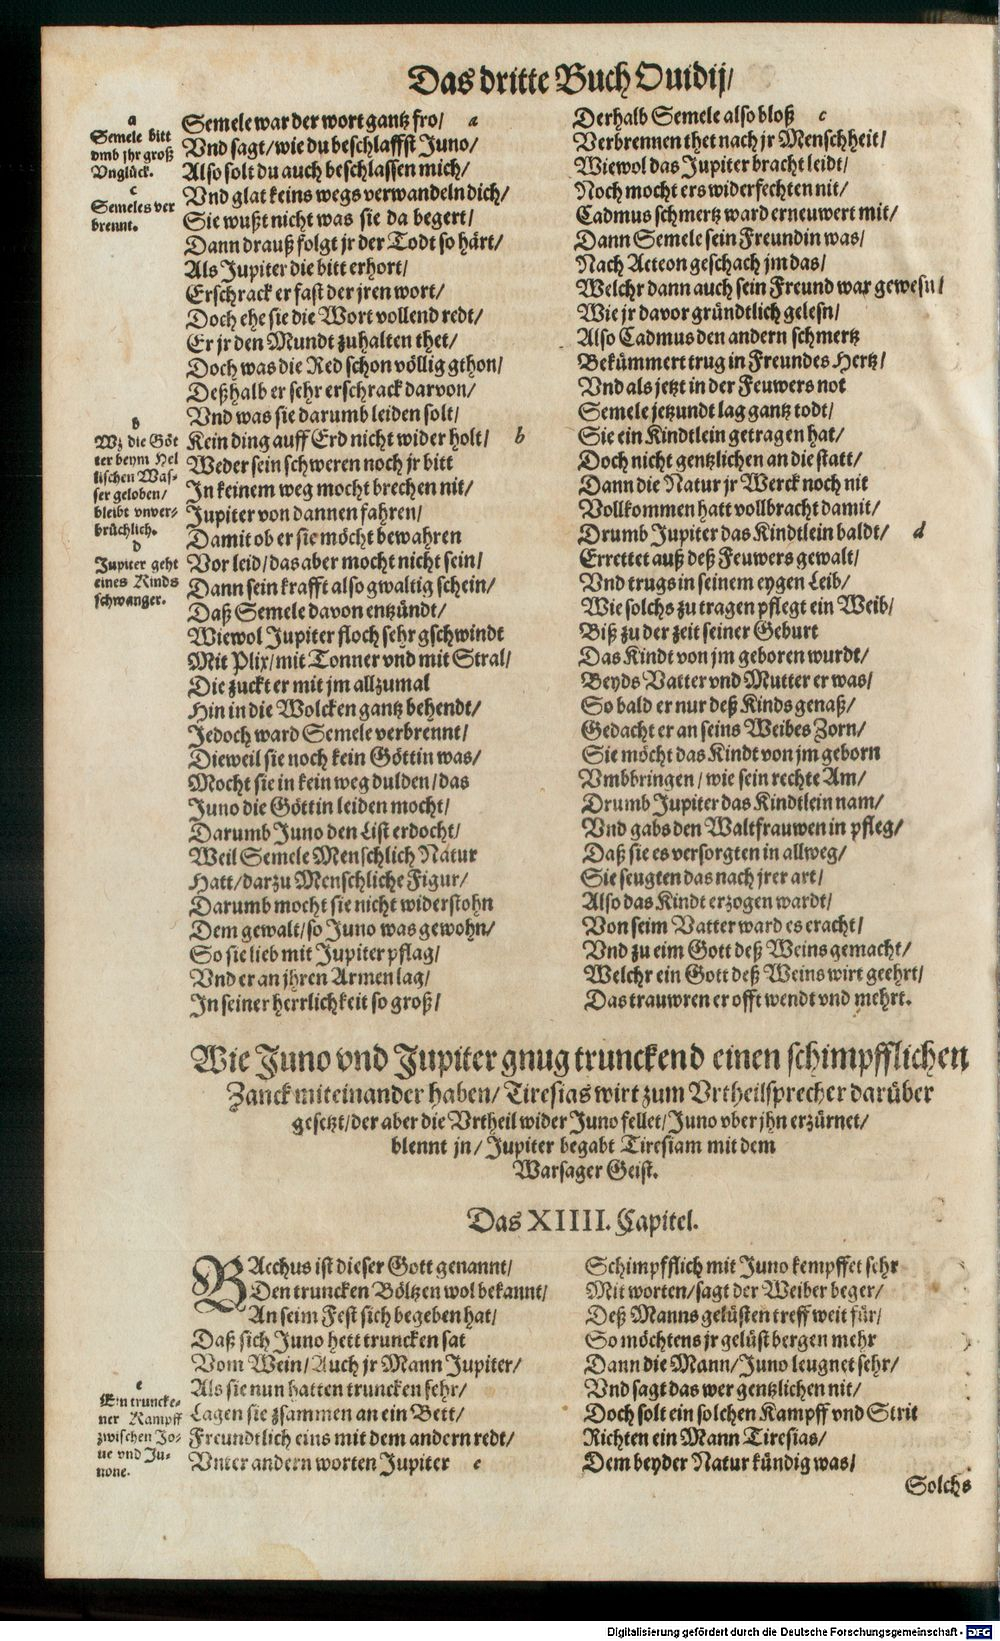 Das dritte Buch Ouidij/
a
Semele bitt
vmb jhr groß
Vnglück.
c
Semeles ver
brennt.
b
Wz die Göt
ter beym Hel
lischen Was-
ser geloben/
bleibt vnver-
brüchlich.
d
Jupiter geht
eines Kinds
schwanger.
Semele war der wort gantz fro/ a
Vnd sagt/wie du beschlaffst Juno/
Also solt du auch beschlaffen mich/
Vnd glat keins wegs verwandeln dich/
Sie wußt nicht was sie da begert/
Dann drauß folgt jr der Todt so härt/
Als Jupiter die bitt erhort/
Erschrack er fast der jren wort/
Doch ehe sie die Wort vollend redt/
Er jr den Mundt zuhalten thet/
Doch was die Red schon völlig gthon/
Deßhalb er sehr erschrack darvon/
Vnd was sie darumb leiden solt/
Kein ding auff Erd nicht wider holt/ b
Weder sein schweren noch jr bitt
In keinem weg mocht brechen nit/
Jupiter von dannen fahren/
Damit ob er sie möcht bewahren
Vor leid/das aber mocht nicht sein/
Dann sein krafft also gwaltig schein/
Daß Semele davon entzündt/
Wiewol Jupiter floch sehr gschwindt
Mit Plix/mit Tonner vnd mit Stral/
Die zuckt er mit jm allzumal
Hin in die Wolcken gantz behendt/
Jedoch ward Semele verbrennt/
Dieweil sie noch kein Göttin was/
Mocht sie in kein weg dulden/das
Juno die Göttin leiden mocht/
Darumb Juno den List erdocht/
Weil Semele Menschlich Natur
Hatt/darzu Menschliche Figur/
Darumb mocht sie nicht widerstohn
Dem gewalt/so Juno was gewohn/
So sie lieb mit Jupiter pflag/
Vnd er an jhren Armen lag/
In seiner herrlichkeit so groß/
Derhalb Semele also bloß c
Verbrennen thet nach jr Menschheit/
Wiewol das Jupiter bracht leidt/
Noch mocht ers widerfechten nit/
Cadmus schmertz ward erneuwert mit/
Dann Semele sein Freundin was/
Nach Acteon geschach jm das/
Welchr dann auch sein Freund war gewesn/
Wie jr davor gründtlich gelesn/
Also Cadmus den andern schmertz
Bekümmert trug in Freundes Hertz/
Vnd als jetzt in der Feuwers not
Semele jetzundt lag gantz todt/
Sie ein Kindtlein getragen hat/
Doch nicht gentzlichen an die statt/
Dann die Natur jr Werck noch nit
Vollkommen hatt vollbracht damit/
Drumb Jupiter das Kindtlein baldt/ d
Errettet auß deß Feuwers gewalt/
Vnd trugs in seinem eygen Leib/
Wie solchs zu tragen pflegt ein Weib/
Biß zu der zeit seiner Geburt
Das Kindt von jm geboren wurdt/
Beyds Vatter vnd Mutter er was/
So bald er nur deß Kinds genaß/
Gedacht er an seins Weibes Zorn/
Sie möcht das Kindt von jm geborn
Vmbbringen/wie sein rechte Am/
Drumb Jupiter das Kindtlein nam/
Vnd gabs den Waltfrauwen in pfleg/
Daß sie es versorgten in allweg/
Sie seugten das nach jrer art/
Also das Kindt erzogen wardt/
Von seim Vatter ward es eracht/
Vnd zu eim Gott deß Weins gemacht/
Welchr ein Gott deß Weins wirt geehrt/
Das trauwren er offt wendt vnd mehrt.
Wie Juno vnd Jupiter gnug trunckend einen schimpfflichen
Zanck miteinander haben/ Tiresias wirt zum Vrtheilsprecher darüber
gesetzt/der aber die Vrtheil wider Juno fellet/Juno vber jhn erzürnet/
blennt jn/ Jupiter begabt Tiresiam mit dem
Warsager Geist.
Das XIIII. Capitel.
e
Ein truncke-
ner Kampff
zwischen Jo-
ue vnd Ju-
none.
BAcchus ist dieser Gott genannt/
Den truncken Böltzen wol bekannt/
An seim Fest sich begeben hat/
Daß sich Juno hett truncken sat
Vom Wein/Auch jr Mann Jupiter/
Als sie nun hatten truncken sehr/
Lagen sie zsammen an ein Bett/
Freundtlich eins mit dem andern redt/
Vnter andern worten Jupiter e
Schimpfflich mit Juno kempffet sehr
Mit worten/sagt der Weiber beger/
Deß Manns gelüsten treff weit für/
So möchtens jr gelüst bergen mehr
Dann die Mann/Juno leugnet sehr/
Vnd sagt das wer gentzlichen nit/
Doch solt ein solchen Kampff vnd Strit
Richten ein Mann Tiresias/
Dem beyder Natur kündig was/
Solchs
Digitalisierung gefördert durch die Deutsche Forschungsgemeinschaft - DFG